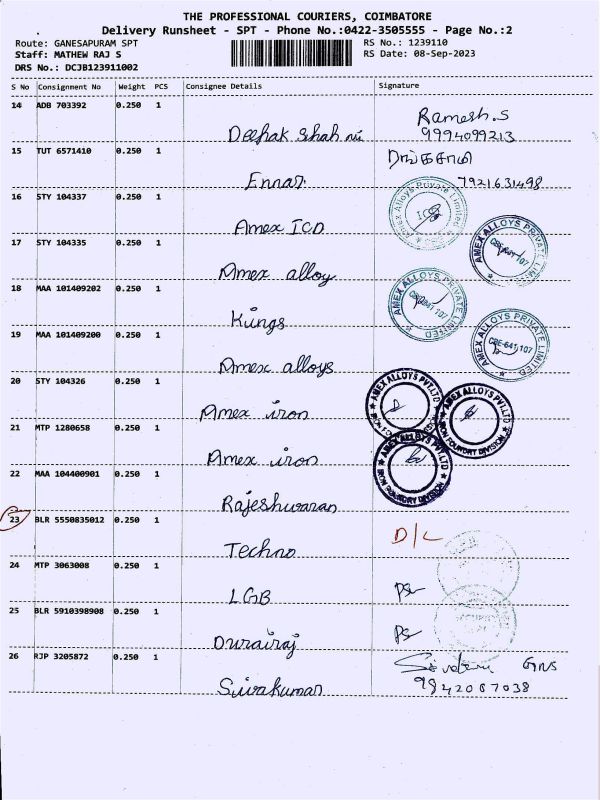 THE PROFESSIONAL COURIERS, COIMBATORE
Delivery Runsheet - SPT - Phone No.:0422-3505555 - Page No.:2
Route: GANESAPURAM SPT
RS No.: 1239110
Staff: MATHEW RAJ S
RS Date: 08-Sep-2023
DRS No.: DCJB123911002
S No Consignment No Weight PCS Consignee Details Signature
14 ADB 703392 0.250 1 Ramesh.S
Deepak Shah 9994099213
15 TUT 6571410 0.250 1 ரங்கசாமி
Ennar 7921631498
16 STY 104337 0.250 1
Amex ICD
17 STY 104335 0.250 1 AMEX ALLOYS PRIVATE LIMITED
Amex alloy
18 MAA 101409202 0.250 1 AMEX ALLOYS PRIVATE LIMITED
Kings
19 MAA 101409200 0.250 1 AMEX ALLOYS PRIVATE LIMITED CBE-641 107
Amex alloys
20 STY 104326 0.250 1 AMEX ALLOYS PVT.LTD
Amex iron
21 MTP 1280658 0.250 1 AMEX ALLOYS PVT.LTD IRON FOUNDRY DIVISION
Amex iron
22 MAA 104400901 0.250 1 AMEX ALLOYS PVT.LTD IRON FOUNDRY DIVISION
Rajeshwaran
23 BLR 5550835012 0.250 1 D/L
Techno
24 MTP 3063008 0.250 1
LGB
25 BLR 5910398908 0.250 1
Durairaj
26 RJP 3205872 0.250 1
Sivakumar 9842087038